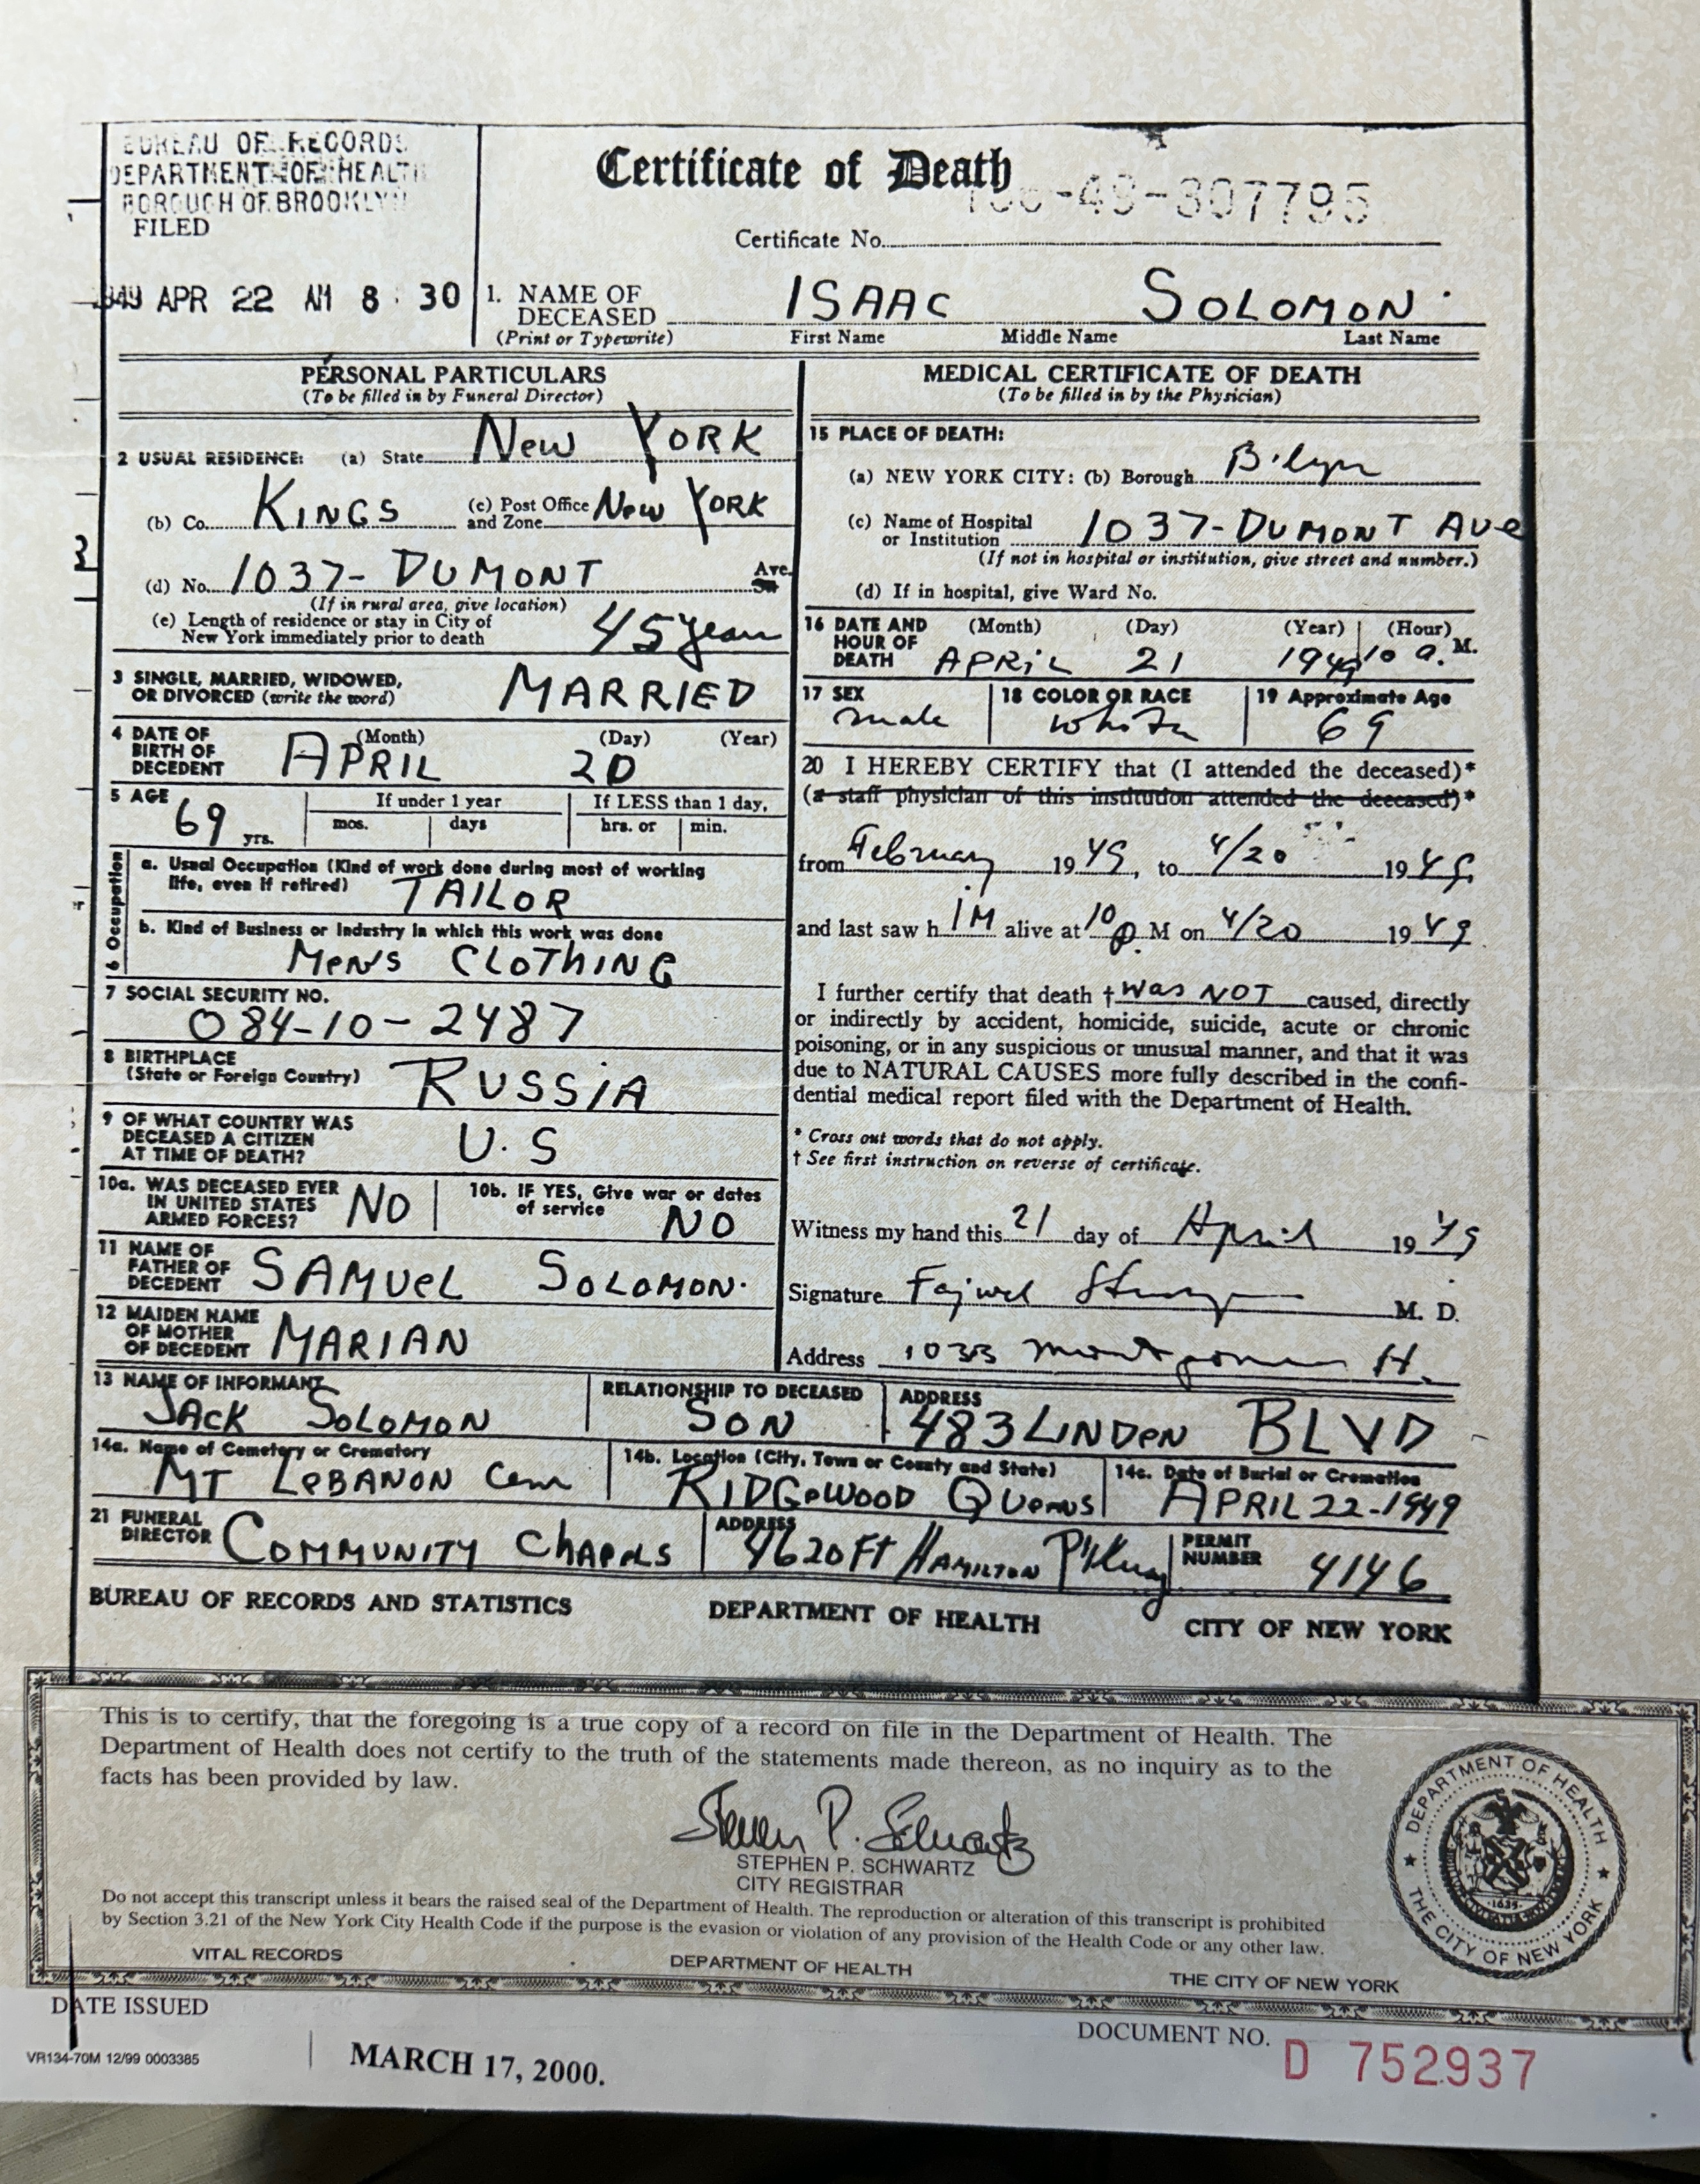 BUREAU OF RECORDS
DEPARTMENT OF HEALTH
BOROUGH OF BROOKLYN
FILED
1949 APR 22 AM 8:30
Certificate of Death
-49-307795
Certificate No.
1. NAME OF DECEASED (Print or Typewrite) ISAAC SOLOMON
First Name Middle Name Last Name
PERSONAL PARTICULARS
(To be filled in by Funeral Director)
2 USUAL RESIDENCE: (a) State New YORK
(b) Co. KINGS (c) Post Office and Zone New YORK
(d) No. 1037- DUMONT Ave. St.
(If in rural area, give location)
(e) Length of residence or stay in City of New York immediately prior to death 45 years
3 SINGLE, MARRIED, WIDOWED, OR DIVORCED (write the word) MARRIED
4 DATE OF BIRTH OF DECEDENT (Month) (Day) (Year)
APRIL 20
5 AGE 69 yrs. If under 1 year mos. days If LESS than 1 day, hrs. or min.
6 Occupation
a. Usual Occupation (Kind of work done during most of working life, even if retired) TAILOR
b. Kind of Business or Industry in which this work was done
MeN's CLOTHING
7 SOCIAL SECURITY NO.
084-10-2487
8 BIRTHPLACE (State or Foreign Country) RUSSIA
9 OF WHAT COUNTRY WAS DECEASED A CITIZEN AT TIME OF DEATH? U.S
10a. WAS DECEASED EVER IN UNITED STATES ARMED FORCES? NO
10b. IF YES, Give war or dates of service NO
11 NAME OF FATHER OF DECEDENT SAMUeL SOLOMON.
12 MAIDEN NAME OF MOTHER OF DECEDENT MARIAN
MEDICAL CERTIFICATE OF DEATH
(To be filled in by the Physician)
15 PLACE OF DEATH:
(a) NEW YORK CITY: (b) Borough B'lyn
(c) Name of Hospital or Institution 1037-DUMONT Ave
(If not in hospital or institution, give street and number.)
(d) If in hospital, give Ward No.
16 DATE AND HOUR OF DEATH (Month) (Day) (Year) (Hour)
APRIL 21 1949 10 a. M.
17 SEX male 18 COLOR OR RACE white 19 Approximate Age 69
20 I HEREBY CERTIFY that (I attended the deceased)*
(a staff physician of this institution attended the deceased)*
from February 1949, to 4/20 1949,
and last saw h IM alive at 10 p. M on 4/20 1949.
I further certify that death † was NOT caused, directly
or indirectly by accident, homicide, suicide, acute or chronic
poisoning, or in any suspicious or unusual manner, and that it was
due to NATURAL CAUSES more fully described in the confi-
dential medical report filed with the Department of Health.
* Cross out words that do not apply.
† See first instruction on reverse of certificate.
Witness my hand this 21 day of April 1949
Signature Fajwel M. D.
Address
13 NAME OF INFORMANT JACK SOLOMON RELATIONSHIP TO DECEASED SON ADDRESS 483 LINDEN BLVD
14a. Name of Cemetery or Crematory MT LeBANON Cem 14b. Location (City, Town or County and State) RIDGewOOD QUeeNS 14c. Date of Burial or Cremation APRIL 22-1949
21 FUNERAL DIRECTOR COMMUNITY CHAPeLS ADDRESS 4620 FT HAMILTON P'Kway PERMIT NUMBER 4146
BUREAU OF RECORDS AND STATISTICS DEPARTMENT OF HEALTH CITY OF NEW YORK
This is to certify, that the foregoing is a true copy of a record on file in the Department of Health. The
Department of Health does not certify to the truth of the statements made thereon, as no inquiry as to the
facts has been provided by law.
Stephen P. Schwartz
STEPHEN P. SCHWARTZ
CITY REGISTRAR
Do not accept this transcript unless it bears the raised seal of the Department of Health. The reproduction or alteration of this transcript is prohibited
by Section 3.21 of the New York City Health Code if the purpose is the evasion or violation of any provision of the Health Code or any other law.
VITAL RECORDS DEPARTMENT OF HEALTH THE CITY OF NEW YORK
DEPARTMENT OF HEALTH
THE CITY OF NEW YORK
DATE ISSUED
DOCUMENT NO. D 752937
VR134-70M 12/99 0003385
MARCH 17, 2000.